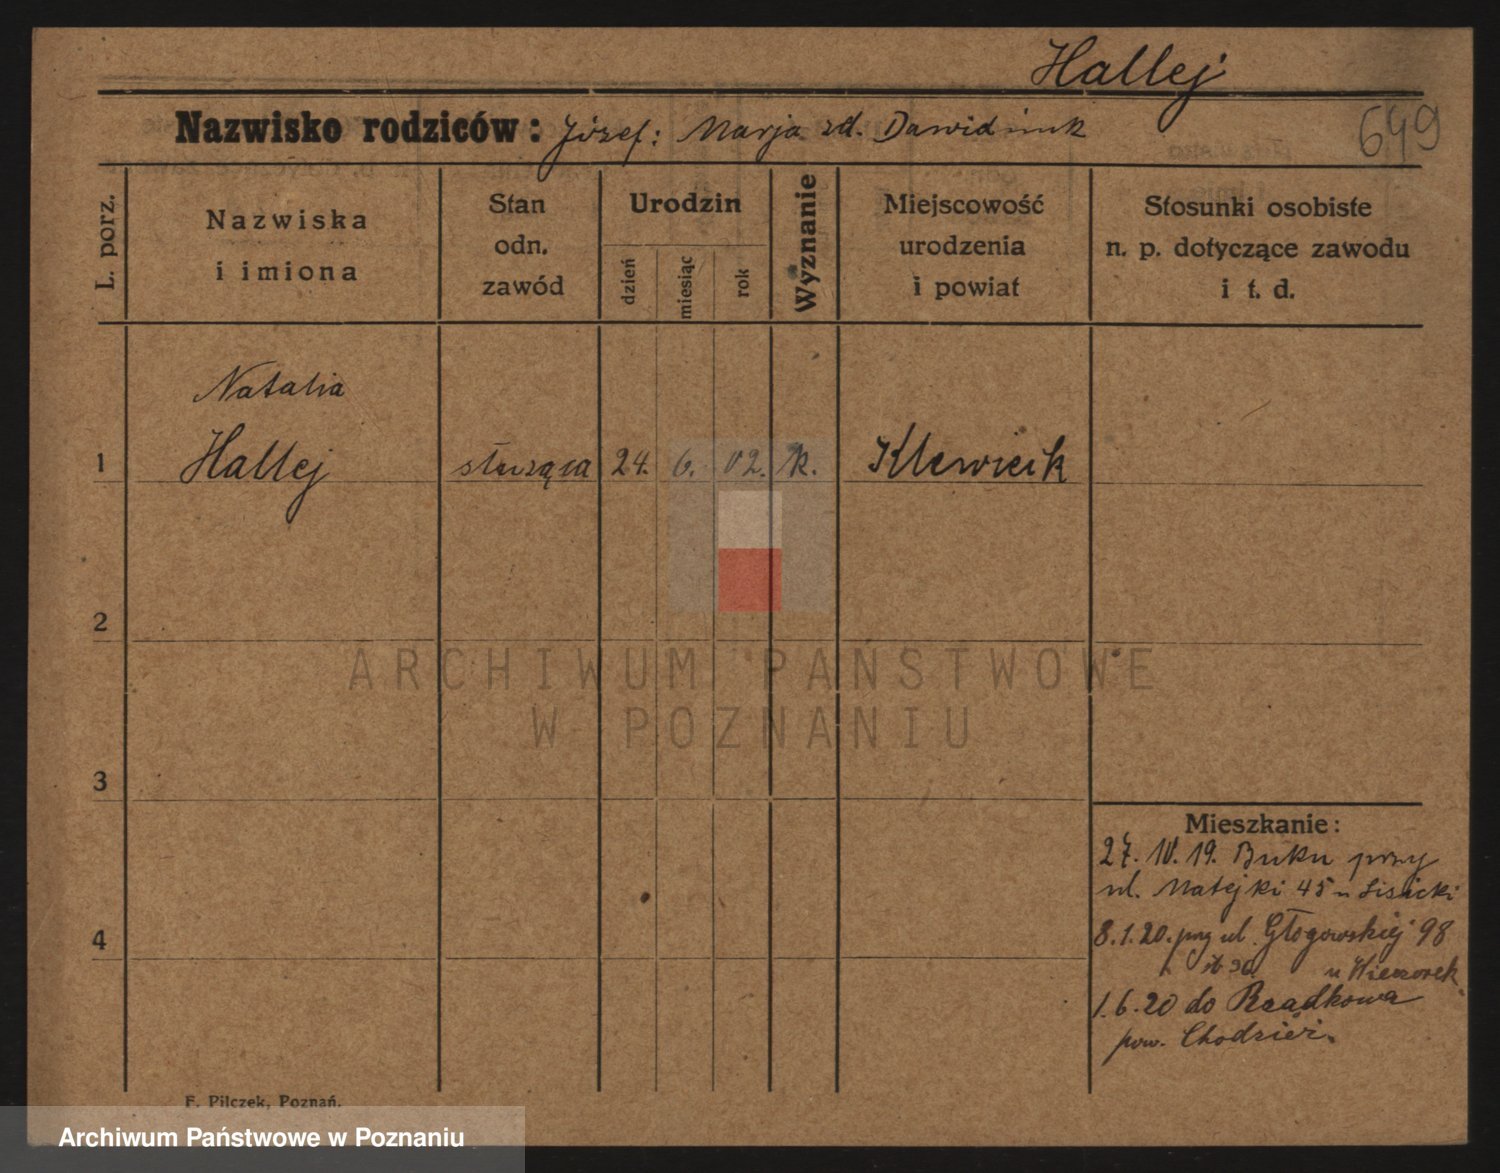 Hallej
Nazwisko rodziców: Józef: Marja zd.
649
L. porz.
Nazwiska
i imiona
Stan
odn.
zawód
Urodzin
dzień
miesiąc
rok
Wyznanie
Miejscowość
urodzenia
i powiat
Stosunki osobiste
n. p. dotyczące zawodu
i t. d.
Natalia
1 Hallej służąca 24. 6. 02. k.
2
3
4
ARCHIWUM PAŃSTWOWE
W POZNANIU
Mieszkanie:
27. 10. 19. Buku przy
ul. Matejki 45 u Lisicki
8.1.20. przy ul. Głogowskiej 98
u Wieczorek
1.6.20 do Rzadkowa
pow. Chodzież.
F. Pilczek, Poznań.
Archiwum Państwowe w Poznaniu